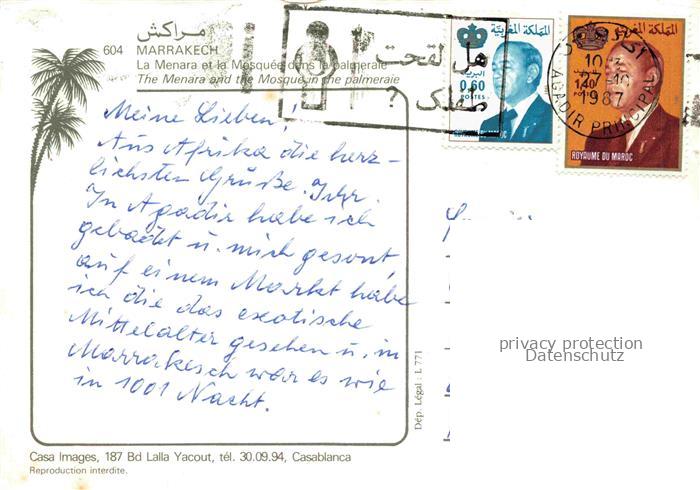 مراكش
604 MARRAKECH
La Menara et la Mosquée dans la palmeraie
The Menara and the Mosque in the palmeraie
هل لقحت
طفلك ؟
المملكة المغربية
البريد
0.60
POSTES
ROYAUME DU MAROC
المملكة المغربية
1,40
ROYAUME DU MAROC
1987
AGADIR PRINCIPAL
Meine Lieben,
Aus Afrika die herz-
lichsten Grüße. Ihr.
In Agadir habe ich
gebadet u. mich gesont,
auf einem Markt habe
ich die das exotische
Mittelalter gesehen u. in
Marrakesch war es wie
in 1001 Nacht.
privacy protection
Datenschutz
Dép. Légal - L 771
Casa Images, 187 Bd Lalla Yacout, tél. 30.09.94, Casablanca
Reproduction interdite.